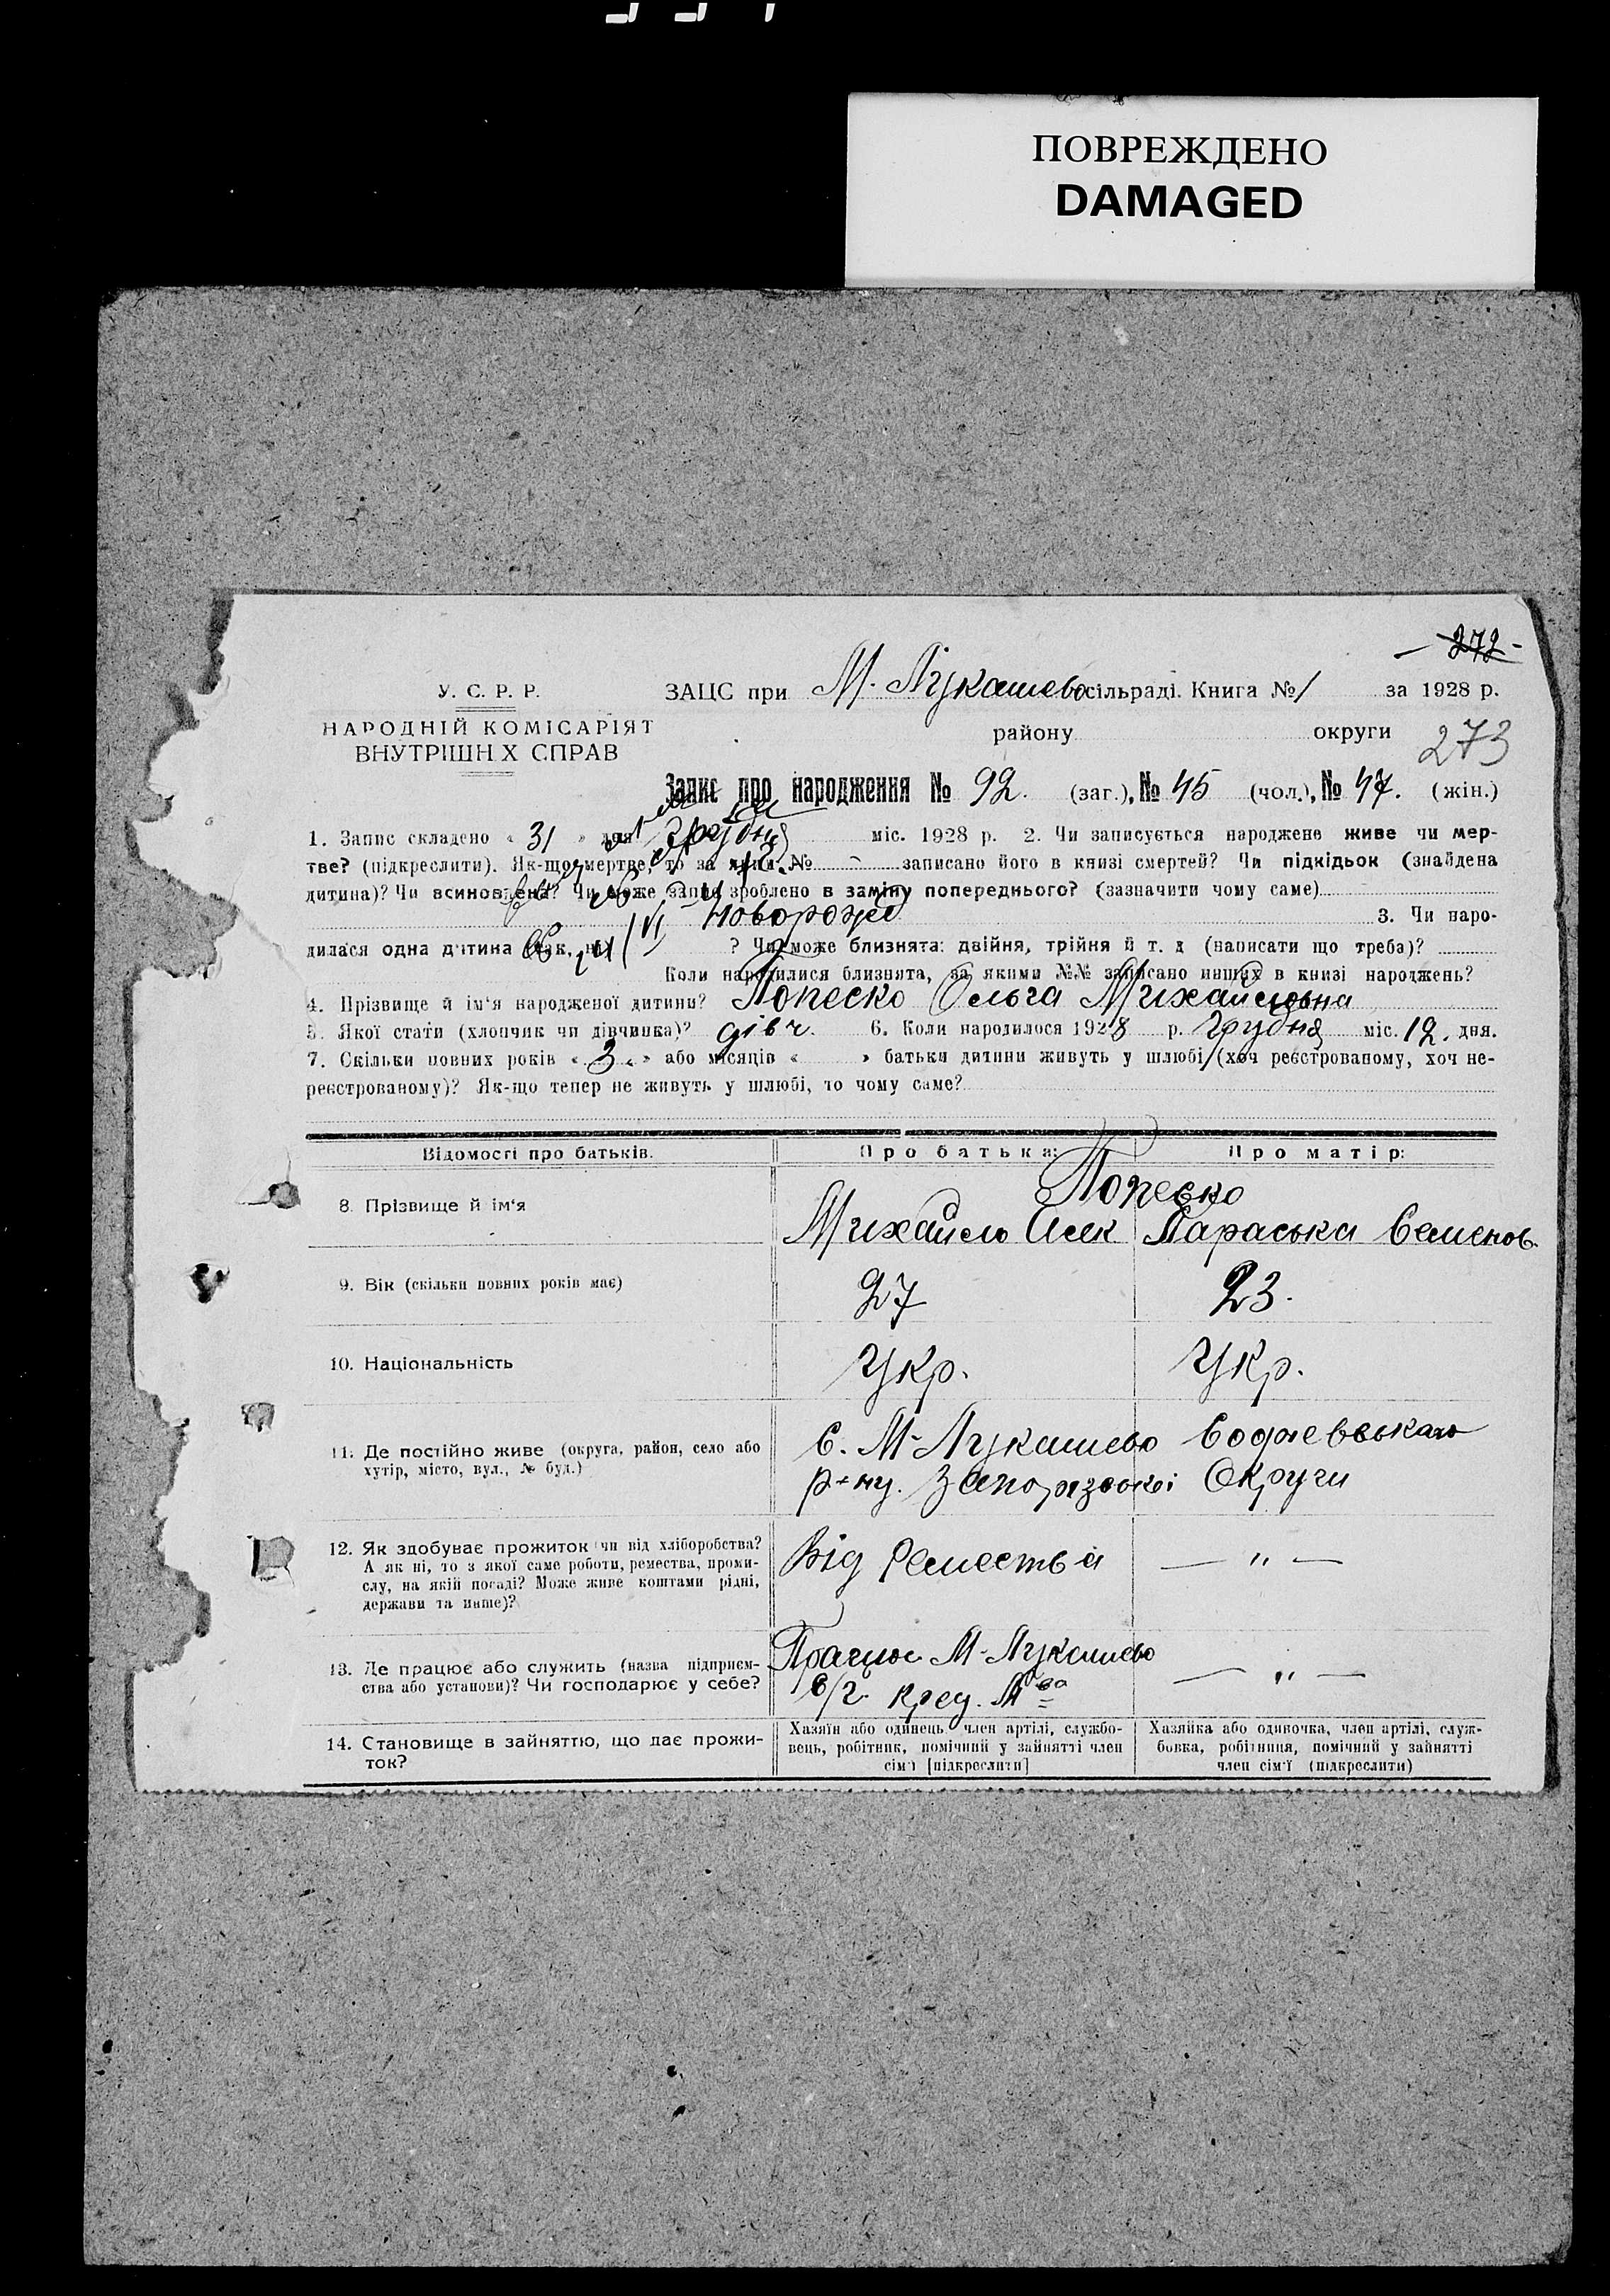 ПОВРЕЖДЕНО
DAMAGED
272
У. С. Р. Р.
НАРОДНІЙ КОМІСАРІЯТ
ВНУТРІШН Х СПРАВ
ЗАЦС при М-Лукашево сільраді. Книга № 1 за 1928 р.
району округи 273
Запис про народження № 92. (заг.), № 45 (чол.), № 47. (жін.)
1. Запис складено « 31 » дня Грудня міс. 1928 р. 2. Чи записується народжене живе чи мер-
тве? (підкреслити). Як-що мертве, то за яким № записано його в книзі смертей? Чи підкідьок (знайдена
дитина)? Чи всиновлена? Чи може запис зроблено в заміну попереднього? (зазначити чому саме)
3. Чи наро-
дилася одна дитина (так, ні) ? Чи може близнята: двійня, трійня й т. д (написати що треба)?
Коли народилися близнята, за якими №№ записано инших в книзі народжень?
4. Прізвище й ім'я народженої дитини? Попеско Ольга Михайловна
5. Якої стати (хлопчик чи дівчинка)? дівч. 6. Коли народилося 1928 р. Грудня міс. 12. дня.
7. Скільки повних років « 3 » або місяців « » батьки дитини живуть у шлюбі (хоч реєстрованому, хоч не-
реєстрованому)? Як-що тепер не живуть у шлюбі, то чому саме?
Відомості про батьків. Про батька: Про матір:
Попеско
8. Прізвище й ім'я Михайло Алек Параська Семенов.
9. Вік (скільки повних років має) 27 23.
10. Національність Укр. Укр.
11. Де постійно живе (округа, район, село або
хутір, місто, вул., № буд.)
С. М-Лукашево
р-ну. Запорізької Округи
12. Як здобуває прожиток чи від хліборобства?
А як ні, то з якої саме роботи, ремества, проми-
слу, на якій посаді? Може живе коштами рідні,
держави та инше)?
Від Ремества — " —
13. Де працює або служить (назва підприєм-
ства або установи)? Чи господарює у себе?
Працює М-Лукашево — " —
с/г. Кред. Т-ва
14. Становище в зайняттю, що дає прожи-
ток?
Хазяїн або одинець член артілі, службо-
вець, робітник, помічний у зайнятті член
сім'ї [підкреслити]
Хазяйка або одиночка, член артілі, служ-
бовка, робітниця, помічний у зайнятті
член сім'ї (підкреслити)